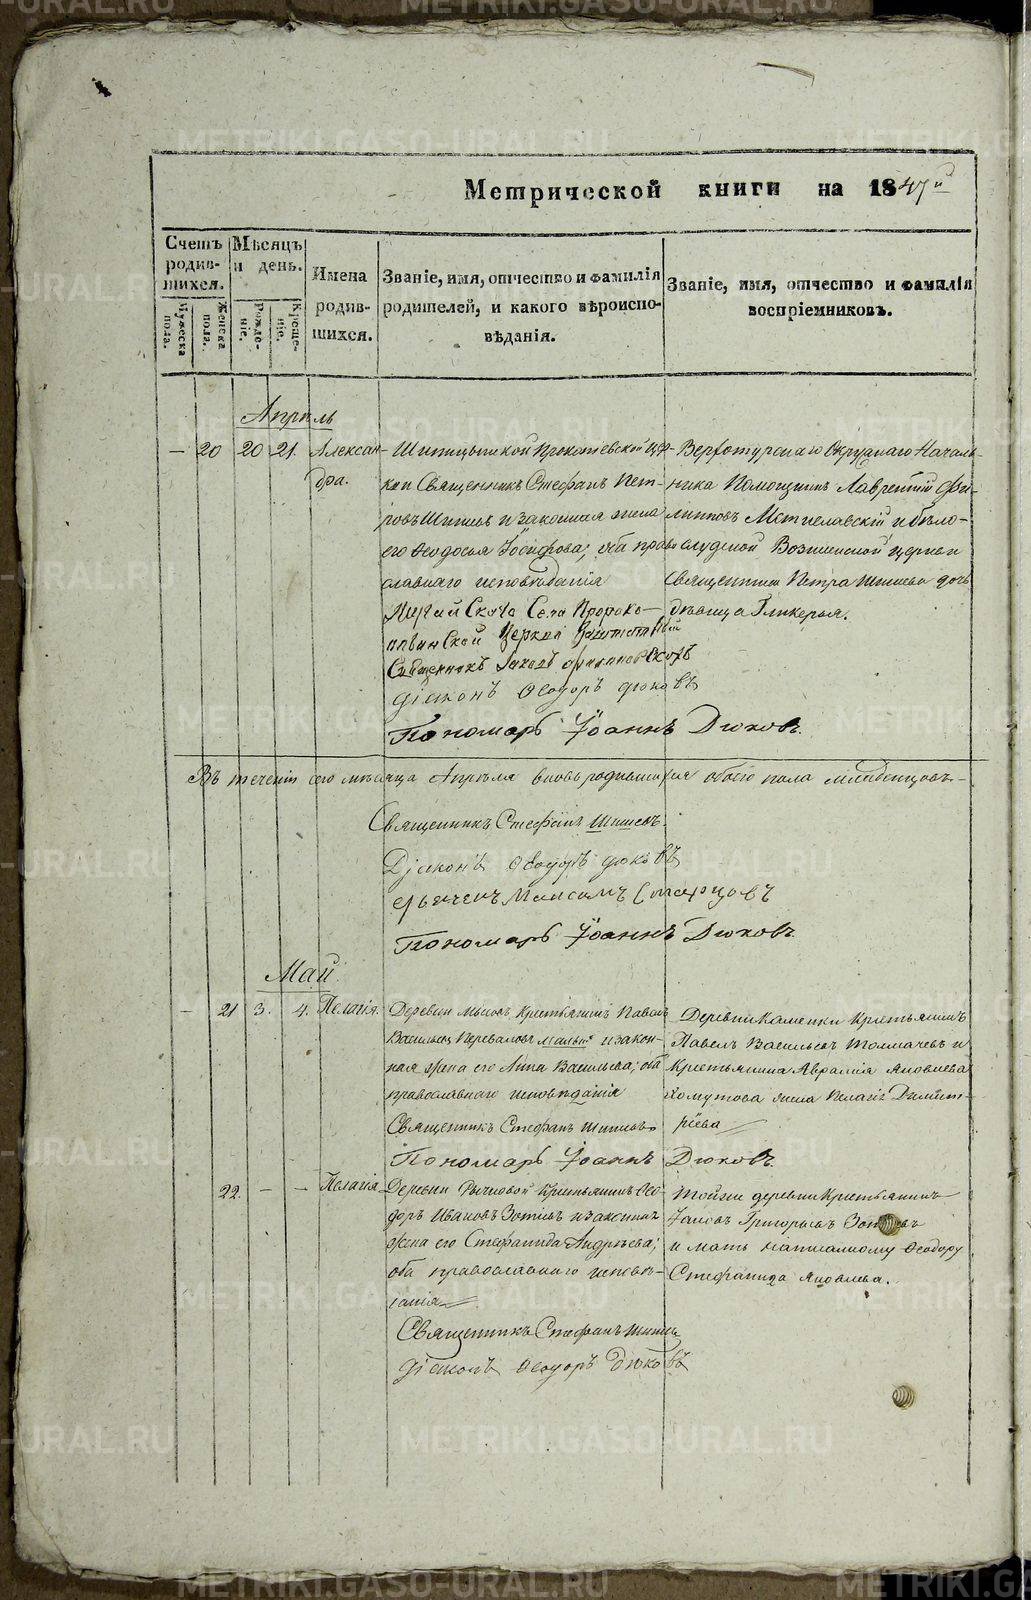 Метрической книги на 1847й
Счетъ родив-шихся.
Мужеска пола.
Женска пола.
Мѣсяцъ и день.
Рожде-ніе.
Креще-ніе.
Имена родив-шихся.
Званіе, имя, отчество и фамилія
родителей, и какого вѣроиспо-
вѣданія.
Званіе, имя, отчество и фамилія
воспріемниковъ.
Апрѣль
— 20 20 21. Алексан-
дра.
Шипицынской Прокопіевской цер-
кви Священникъ Стефанъ Пет-
ровъ Шишевъ и законная жена
его Ѳеодосья Іосифова; оба право-
славнаго исповѣданія
Села Пророко-
Ильинской Церкви
Священникъ
Діаконъ Ѳеодоръ Дюковъ
Пономарь Іоаннъ Дюковъ.
Верхотурскаго Окружнаго Началь-
ника Помощникъ Лаврентій Фи-
липповъ Мстиславскій и Бѣло-
слудской Вознесенской церкви
священника Петра Шишева дочь
дѣвица Гликерья.
Въ теченіи сего мѣсяца Апрѣля вновь родившихся обоего пола младенцовъ—
Священникъ Стефанъ Шишевъ.
Діаконъ Ѳеодоръ Дюковъ
Дьячекъ Максимъ Старцовъ
Пономарь Іоаннъ Дюковъ
Май.
— 21 3. 4. Пелагія.
Деревни Мысовъ Крестьянинъ Павелъ
Васильевъ Переваловъ и закон-
ная жена его Анна Васильева; оба
православнаго исповѣданія
Священникъ Стефанъ Шишевъ
Пономарь Іоаннъ Дюковъ.
Деревни Каменки Крестьянинъ
Павелъ Васильевъ Толмачевъ и
Крестьянина Авраамія Яковлева
Хомутова жена Пелагія Димит-
ріева
22. — — Пелагія
Деревни Рычковой Крестьянинъ Ѳео-
доръ Ивановъ Зотѣевъ и законная
жена его Стефанида Андреева;
оба православнаго исповѣ-
данія
Священникъ Стефанъ Шишевъ
Діаконъ Ѳеодоръ Дюковъ
Тойже деревни Крестьянинъ
Григорьевъ
и мать написанному Ѳеодору
Стефанида Яковлева.
METRIKI.GASO-URAL.RU